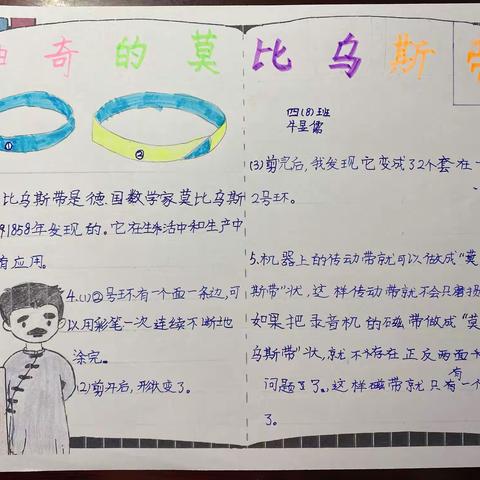 神奇的莫比乌斯带
四(8)班
牛昱儒
①
②
比乌斯带是德国数学家莫比乌斯
1858年发现的。它在生活中和生产中
有应用。
4.(1)②号环有一个面一条边,可
以用彩笔一次连续不断地
涂完。
(2)剪开后,形状变了。
(3)剪完后,我发现它变成了2个套在一
2号环。
5.机器上的传动带就可以做成“莫
斯带”状,这样传动带就不会只磨损
如果把录音机的磁带做成“莫
乌斯带”状,就不存在正反两面
问题了。这样磁带就只有一个
了。